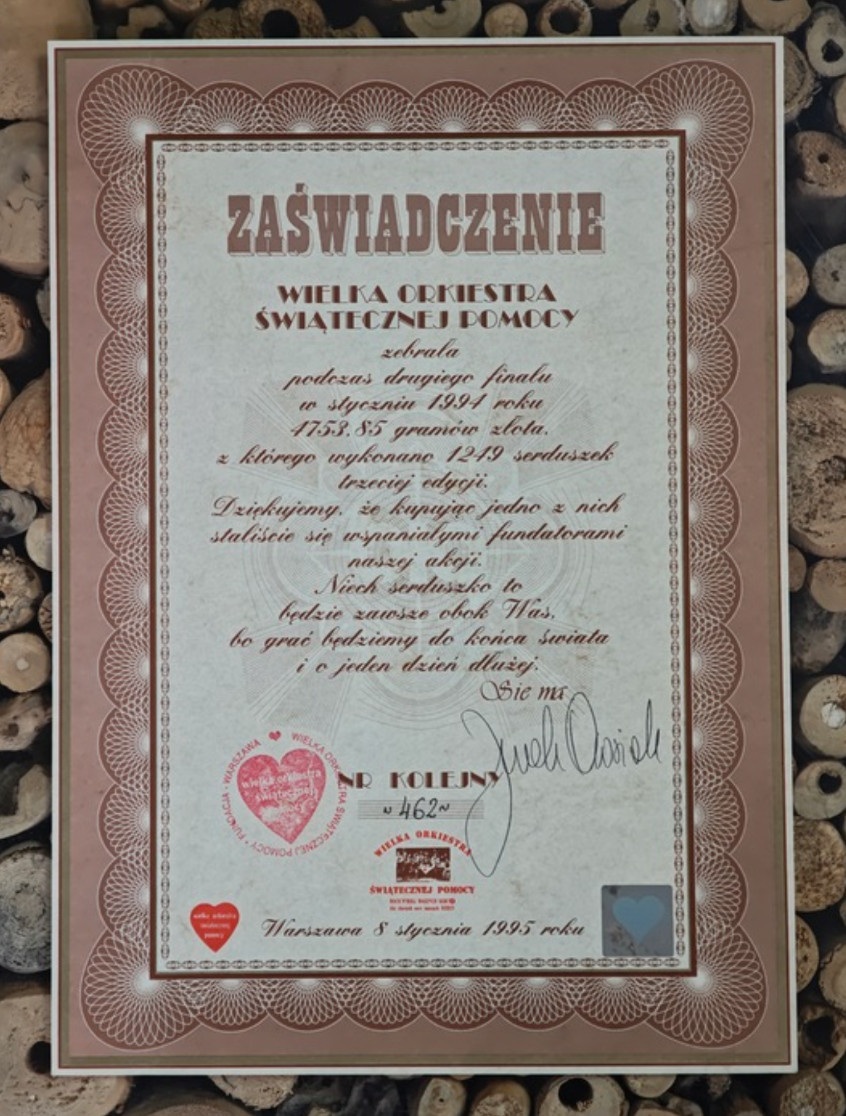 ZAŚWIADCZENIE
WIELKA ORKIESTRA
ŚWIĄTECZNEJ POMOCY
zebrała
podczas drugiego finału
w styczniu 1994 roku
4753.85 gramów złota,
z którego wykonano 1249 serduszek
trzeciej edycji.
Dziękujemy, że kupując jedno z nich
staliście się wspaniałymi fundatorami
naszej akcji.
Niech serduszko to
będzie zawsze obok Was,
bo grać będziemy do końca świata
i o jeden dzień dłużej.
Sie ma
FUNDACJA - WARSZAWA WIELKA ORKIESTRA ŚWIĄTECZNEJ POMOCY
wielka orkiestra
świątecznej
pomocy
NR KOLEJNY
~ 462 ~
WIELKA ORKIESTRA
ŚWIĄTECZNEJ POMOCY
Warszawa 8 stycznia 1995 roku